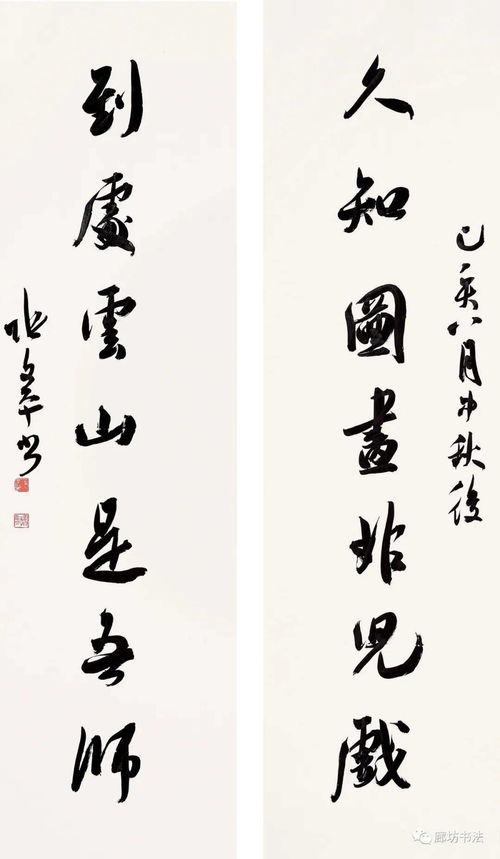 己亥八月中秋後
久知圖畫非兒戲
到處雲山是吾師
廊坊书法